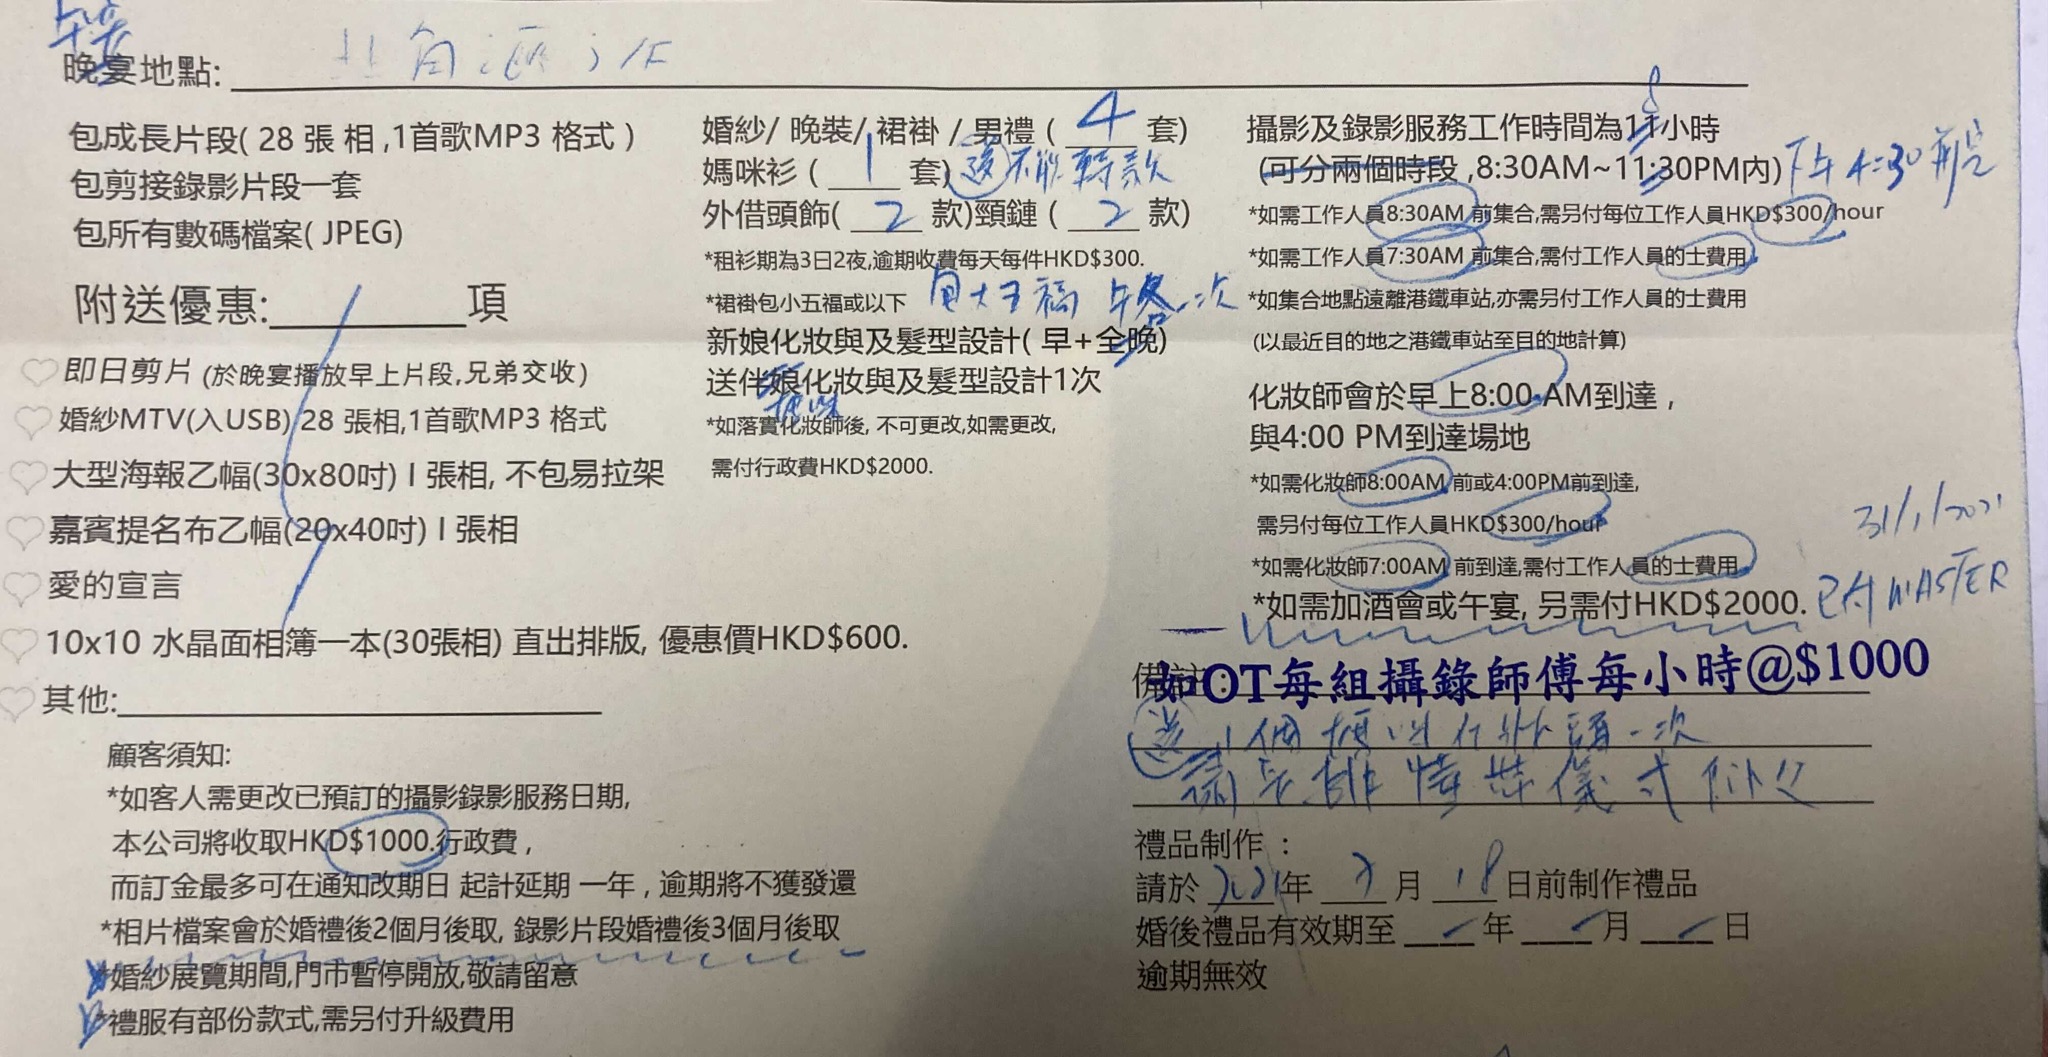 午宴
晚宴地點: 北角匯
包成長片段( 28 張 相 ,1首歌MP3 格式 )
包剪接錄影片段一套
包所有數碼檔案( JPEG)
附送優惠:________項
即日剪片 (於晚宴播放早上片段,兄弟交收)
婚紗MTV(入USB) 28 張相,1首歌MP3 格式
大型海報乙幅(30x80吋) I 張相, 不包易拉架
嘉賓提名布乙幅(20x40吋) I 張相
愛的宣言
10x10 水晶面相簿一本(30張相) 直出排版, 優惠價HKD$600.
其他:
顧客須知:
*如客人需更改已預訂的攝影錄影服務日期,
本公司將收取HKD$1000.行政費 ,
而訂金最多可在通知改期日 起計延期 一年 , 逾期將不獲發還
*相片檔案會於婚禮後2個月後取, 錄影片段婚禮後3個月後取
*婚紗展覽期間,門市暫停開放,敬請留意
*禮服有部份款式,需另付升級費用
婚紗/ 晚裝/ 裙褂 / 男禮 ( 4 套)
媽咪衫 ( 1 套) 送 不能轉款
外借頭飾( 2 款)頸鏈 ( 2 款)
*租衫期為3日2夜,逾期收費每天每件HKD$300.
*裙褂包小五福或以下 包大五福 一次
新娘化妝與及髮型設計( 早+全晚)
送伴娘化妝與及髮型設計1次
媽咪
*如落實化妝師後, 不可更改,如需更改,
需付行政費HKD$2000.
攝影及錄影服務工作時間為11小時 8
(可分兩個時段 ,8:30AM~11:30PM內) 下午4:30前完
*如需工作人員8:30AM 前集合,需另付每位工作人員HKD$300/hour
*如需工作人員7:30AM 前集合,需付工作人員的士費用
*如集合地點遠離港鐵車站,亦需另付工作人員的士費用
(以最近目的地之港鐵車站至目的地計算)
化妝師會於早上8:00 AM到達 ,
與4:00 PM到達場地
*如需化妝師8:00AM 前或4:00PM前到達,
需另付每位工作人員HKD$300/hour
*如需化妝師7:00AM 前到達,需付工作人員的士費用
31/1/2021
*如需加酒會或午宴, 另需付HKD$2000. 已付 MASTER
備註:
如OT每組攝錄師傅每小時@$1000
送 1個媽咪化妝頭一次
請安排 儀式
禮品制作 :
請於 2021 年 3 月 18 日前制作禮品
婚後禮品有效期至 ____ 年 ____ 月 ____ 日
逾期無效